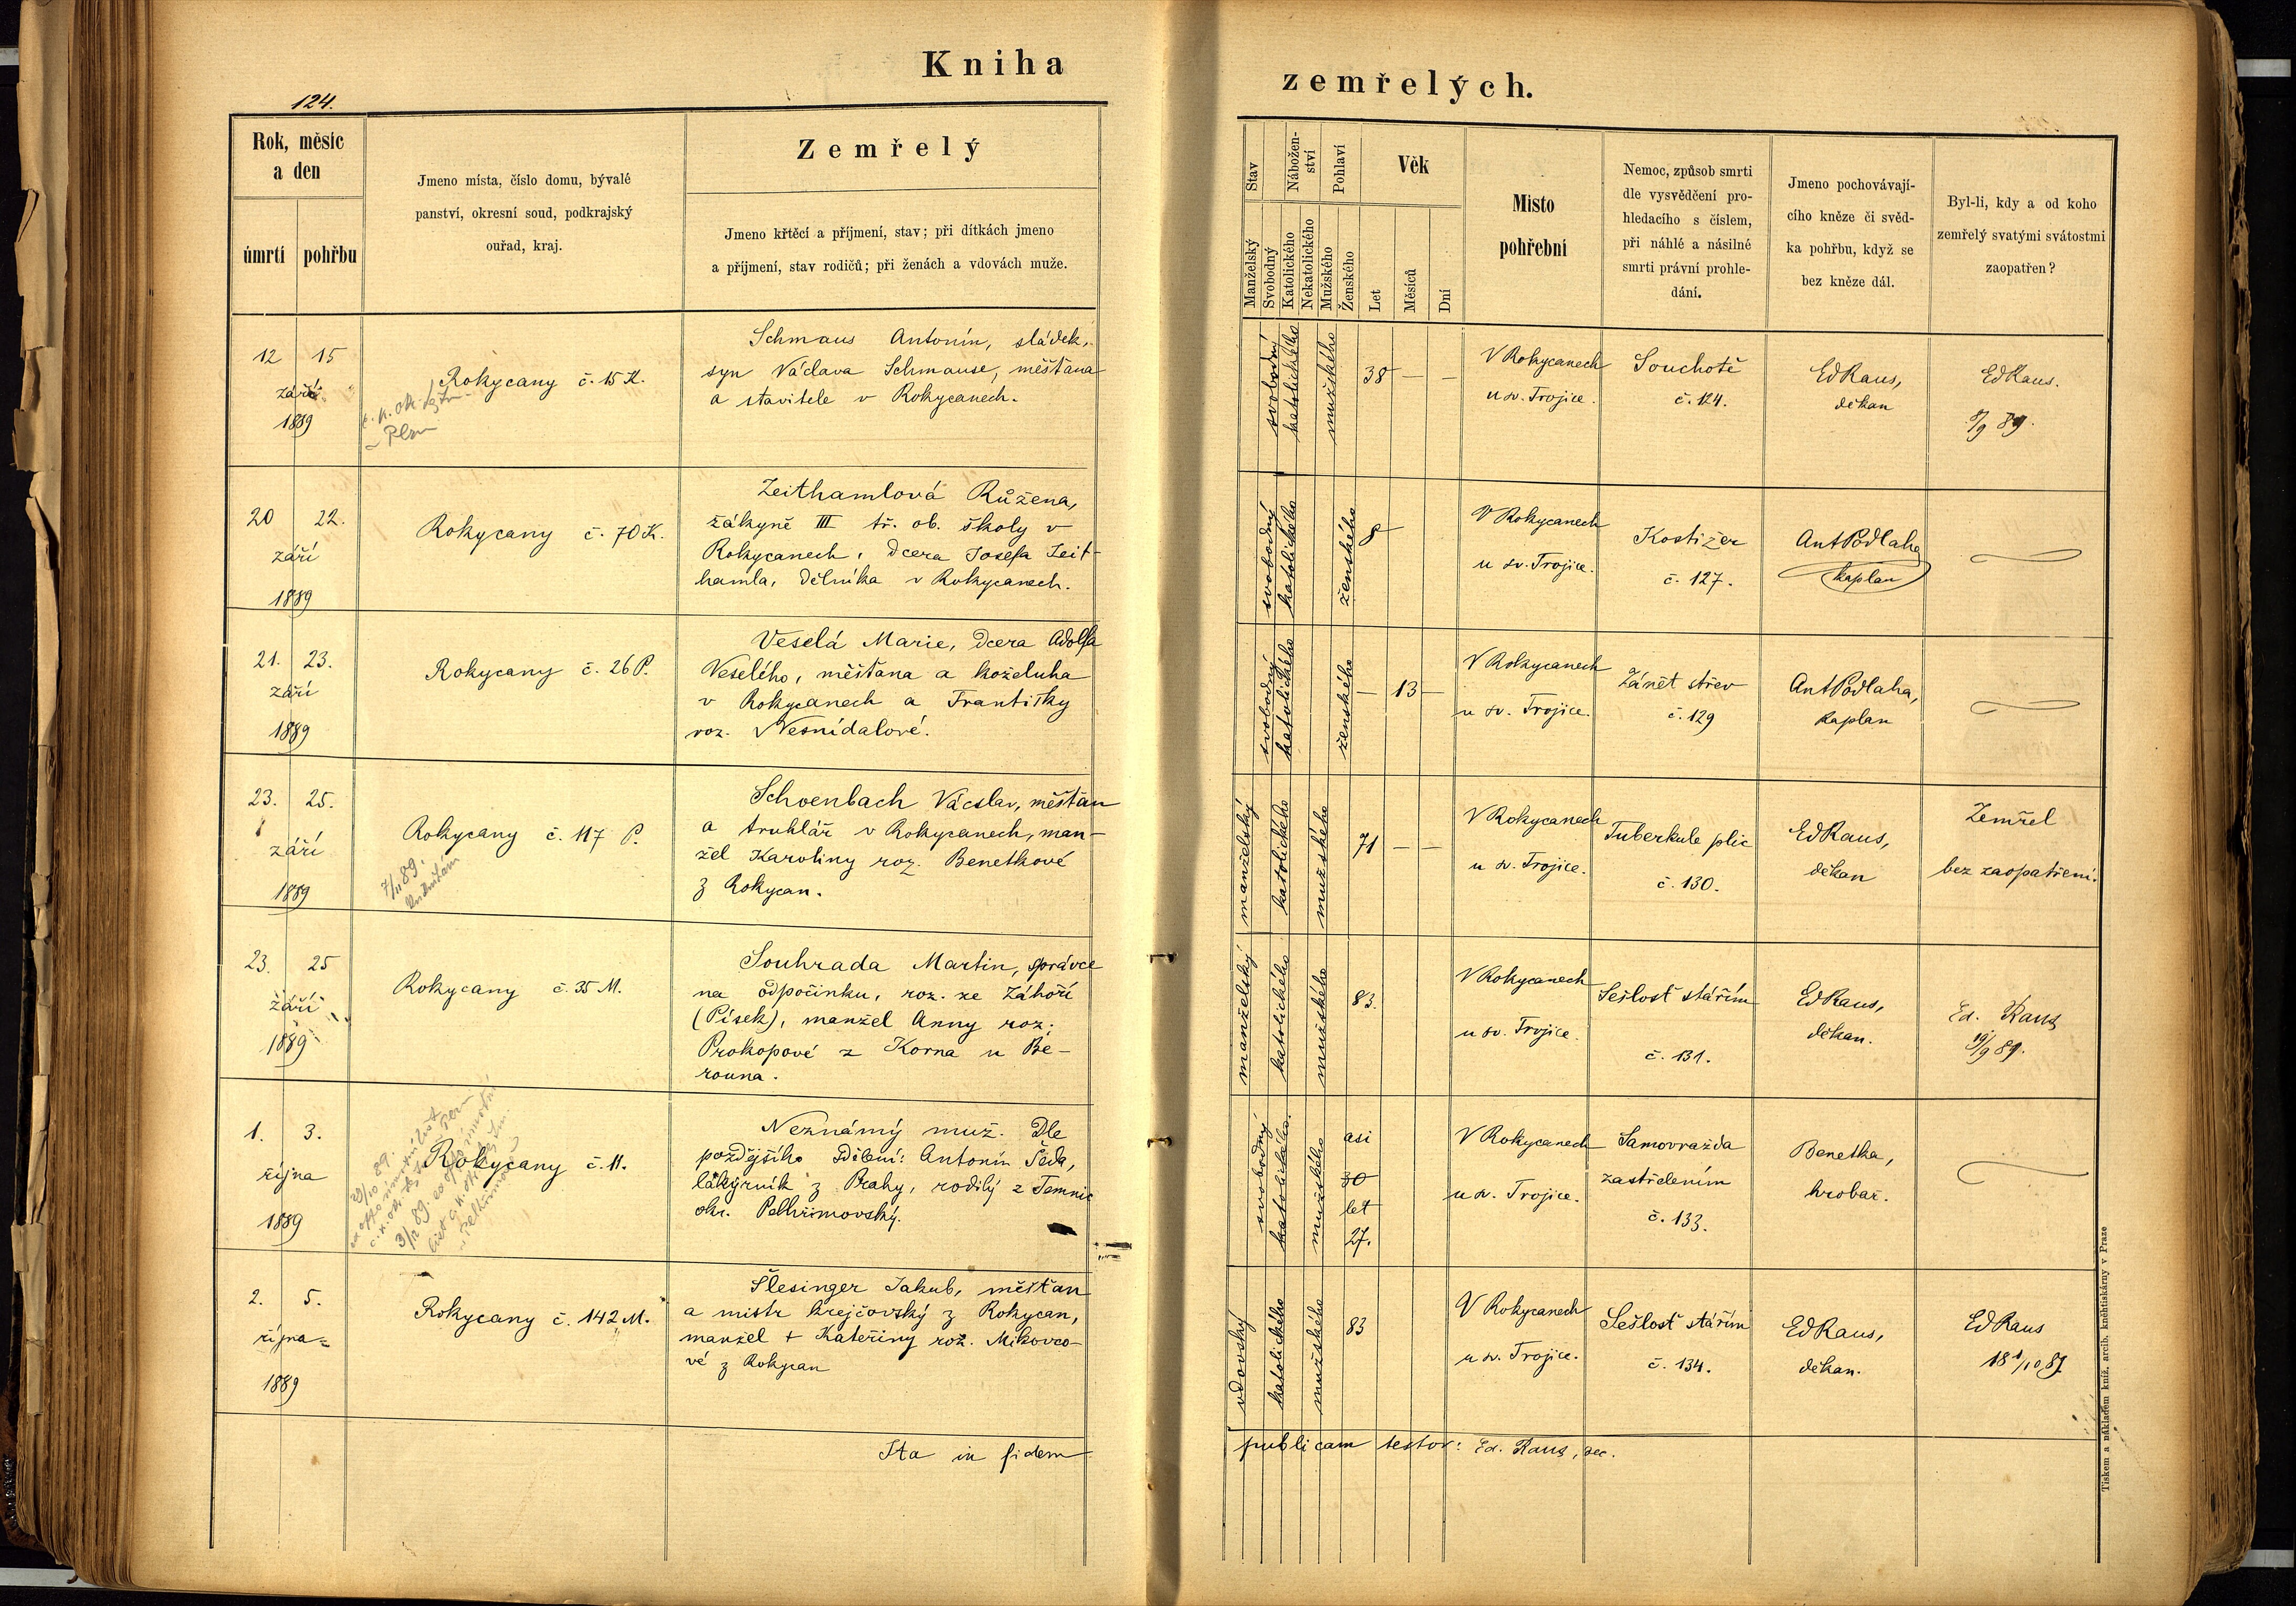 Kniha
zemřelých.
124.
Rok, měsíc
a den
úmrtí
pohřbu
Jmeno místa, číslo domu, bývalé
panství, okresní soud, podkrajský
ouřad, kraj.
Zemřelý
Jmeno křtěcí a příjmení, stav; při dítkách jmeno
a příjmení, stav rodičů; při ženách a vdovách muže.
Stav
Manželský
Svobodný
Nábožen-
ství
Katolického
Nekatolického
Pohlaví
Mužského
Ženského
Věk
Let
Měsíců
Dní
Místo
pohřební
Nemoc, způsob smrti
dle vysvědčení pro-
hledacího s číslem,
při náhlé a násilné
smrti právní prohle-
dání.
Jmeno pochovávají-
cího kněze či svěd-
ka pohřbu, když se
bez kněze dál.
Byl-li, kdy a od koho
zemřelý svatými svátostmi
zaopatřen?
12 15
září
1889
Rokycany č. 15 K.
Schmaus Antonín, sládek,
syn Václava Schmause, měšťana
a stavitele v Rokycanech.
svobodní
katolického
mužského
38 — —
V Rokycanech
u sv. Trojice.
Souchotě
č. 124.
Ed Raus,
děkan
Ed Raus.
8/9 89.
20 22.
září
1889
Rokycany č. 70 K.
Zeithamlová Růžena,
žákyně III tř. ob. školy v
Rokycanech, dcera Josefa Zeit-
hamla, dělníka v Rokycanech.
svobodný
katolického
ženského
8
V Rokycanech
u sv. Trojice.
Kostižer
č. 127.
Ant Podlaha
kaplan
21. 23.
září
1889
Rokycany č. 26 P.
Veselá Marie, dcera Adolfa
Veselého, měšťana a koželuha
v Rokycanech a Františky
roz. Nesnídalové.
svobodný
katolického
ženského
— 13 —
V Rokycanech
u sv. Trojice.
Zánět střev
č. 129
Ant Podlaha,
kaplan
23. 25.
září
1889
Rokycany č. 117 P.
7/11 89.
Schoenbach Václav, měšťan
a truhlář v Rokycanech, man-
žel Karoliny roz. Benetkové
z Rokycan.
manželský
katolického
mužského
71 — —
V Rokycanech
u sv. Trojice.
Tuberkule plic
č. 130.
Ed Raus,
děkan
Zemřel
bez zaopatření.
23. 25
září
1889
Rokycany č. 35 M.
Souhrada Martin, správce
na odpočinku, roz. ze Záhoří
(Písek), manžel Anny roz.
Prokopové z Korna u Be-
rouna.
manželský
katolického
mužského
83.
V Rokycanech
u sv. Trojice.
Sešlosť stářím
č. 131.
Ed Raus,
děkan.
Ed. Raus
19/9 89.
1. 3.
října
1889
Rokycany č. 11.
Neznámý muž. Dle
pozdějšího sdělení: Antonín Šída,
lakýrník z Prahy, rodilý z Temnic
okr. Pelhřimovský.
svobodný
katolického.
mužského
asi
30
let
27.
V Rokycanech
u sv. Trojice.
Samovražda
zastřelením
č. 133.
Benetka,
hrobař.
2. 5.
října
1889
Rokycany č. 142 M.
Šlesinger Jakub, měšťan
a mistr krejčovský z Rokycan,
manžel + Kateřiny roz. Mikovco-
vé z Rokycan
vdovský
katolického
mužského
83
V Rokycanech
u sv. Trojice.
Sešlosť stářím
č. 134.
Ed Raus,
děkan.
Ed Raus
18 1/10 89
Ita in fidem
publicam testor: Ed. Raus, dec.
Tiskem a nákladem kníž. arcib. kněhtiskárny v Praze